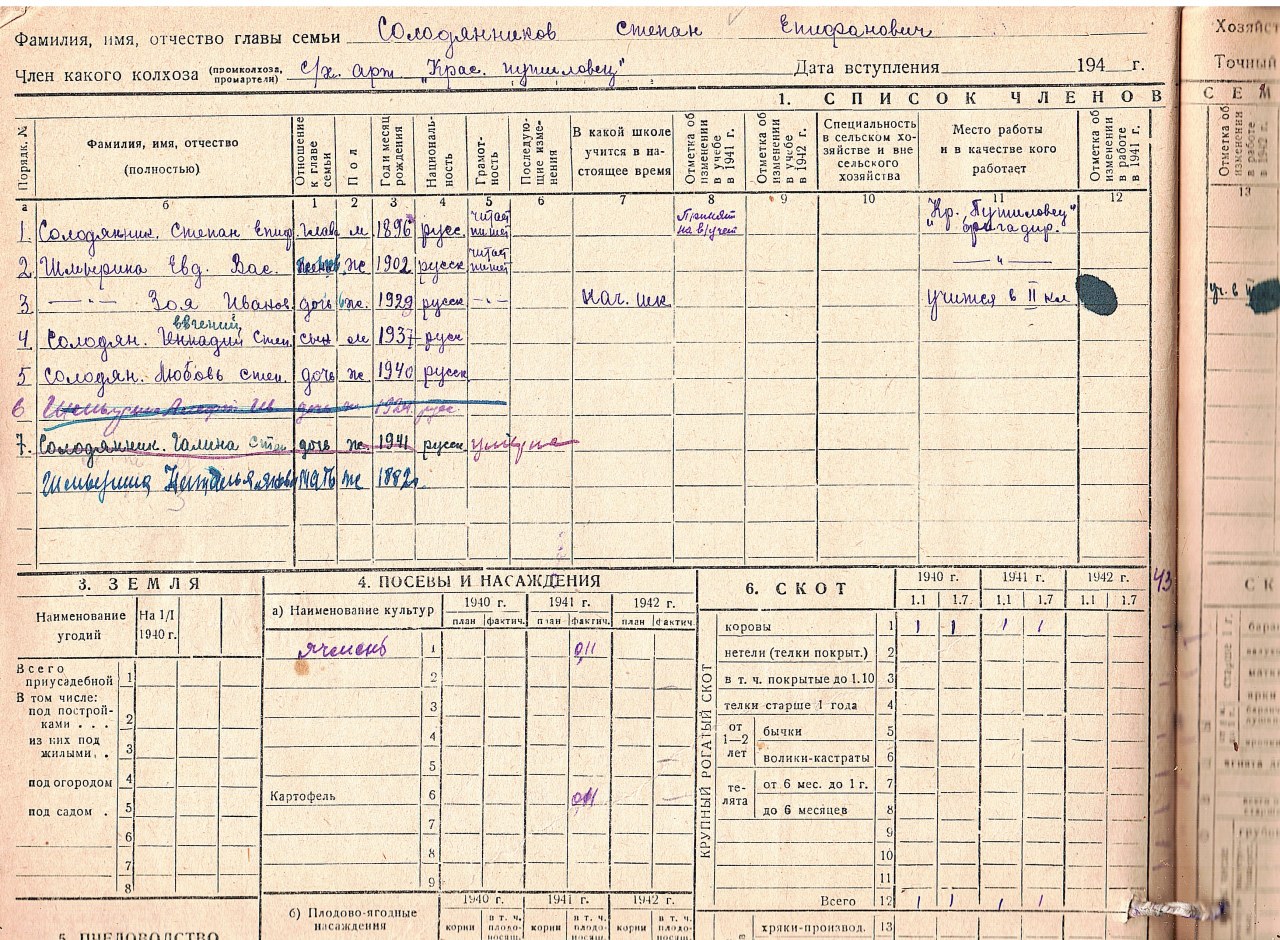 Фамилия, имя, отчество главы семьи Солодянников Степан Епифанович
Член какого колхоза (промколхоза, промартели) с/х. арт "Крас. путиловец" Дата вступления 194 г.
1. СПИСОК ЧЛЕНОВ
Порядк. № Фамилия, имя, отчество (полностью) Отношение к главе семьи Пол Год и месяц рождения Националь-ность Грамот-ность Последую-щие изме-нения В какой школе учится в на-стоящее время Отметка об изменении в учебе в 1941 г. Отметка об изменении в учебе в 1942 г. Специальность в сельском хо-зяйстве и вне сельского хозяйства Место работы и в качестве кого работает Отметка об изменении в работе в 1941 г.
а б 1 2 3 4 5 6 7 8 9 10 11 12
1. Солодянник. Степан Епиф. глав м 1896 русс читает пишет Принят на в/учет "Кр. Путиловец" бригадир.
2. Шмырина Евд. Вас. ж 1902 русск читает пишет — " —
3 — " — Зоя Иванов. дочь ж. 1929 русск — " — нач. шк учится в II кл
евгений
4 Солодян. Геннадий Степ. сын м 1937 русск
5 Солодян. Любовь Степ. дочь ж 1940 русск
6
7. Солодянник. Галина Степ дочь ж 1941 русск умерла
Шмырина Наталья мать ж 1882
3. ЗЕМЛЯ
Наименование угодий На 1/I 1940 г.
Всего приусадебной 1
В том числе:
под построй-ками . . . 2
из них под жилыми. . 3
под огородом 4
под садом . 5
6
7
8
5. ПЧЕЛОВОДСТВО
4. ПОСЕВЫ И НАСАЖДЕНИЯ
а) Наименование культур 1940 г. 1941 г. 1942 г.
план фактич. план фактич. план фактич.
ячмень 1 0,11
2
3
4
5
Картофель 6
7
8
9
б) Плодово-ягодные насаждения 1940 г. 1941 г. 1942 г.
корни в т. ч. плодо-носящ. корни в т. ч. плодо-носящ. корни в т. ч. плодо-носящ.
6. СКОТ 1940 г. 1941 г. 1942 г.
1.1 1.7 1.1 1.7 1.1 1.7
43
КРУПНЫЙ РОГАТЫЙ СКОТ
коровы 1 1 1 1 1
нетели (телки покрыт.) 2
в т. ч. покрытые до 1.10 3
телки старше 1 года 4
от 1—2 лет бычки 5
волики-кастраты 6
те-лята от 6 мес. до 1 г. 7
до 6 месяцев 8
9
10
11
Всего 12 1 1 1 1
хряки-производ. 13
Хозяйст
Точный
СЕМ
Отметка об изменении в работе в 1942 г.
13